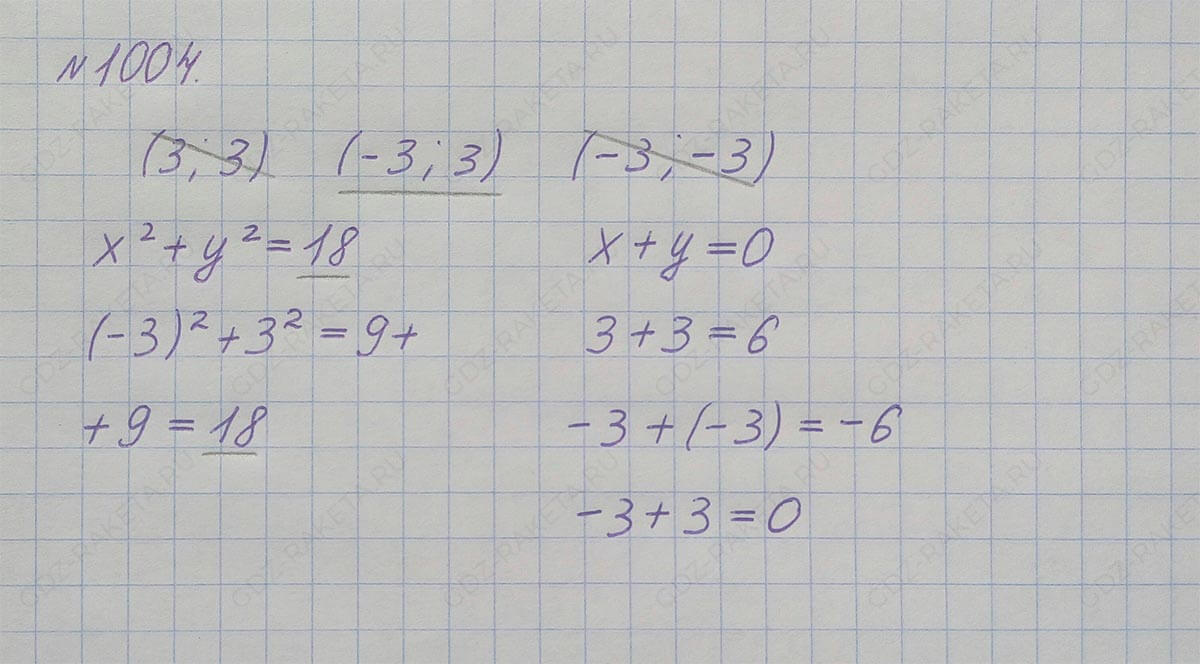 №1004.
(3; 3) (-3; 3) (-3; -3)
x² + y² = 18 x + y = 0
(-3)² + 3² = 9+ 3 + 3 = 6
+ 9 = 18 -3 + (-3) = -6
-3 + 3 = 0
GDZ-RAKETA.RU